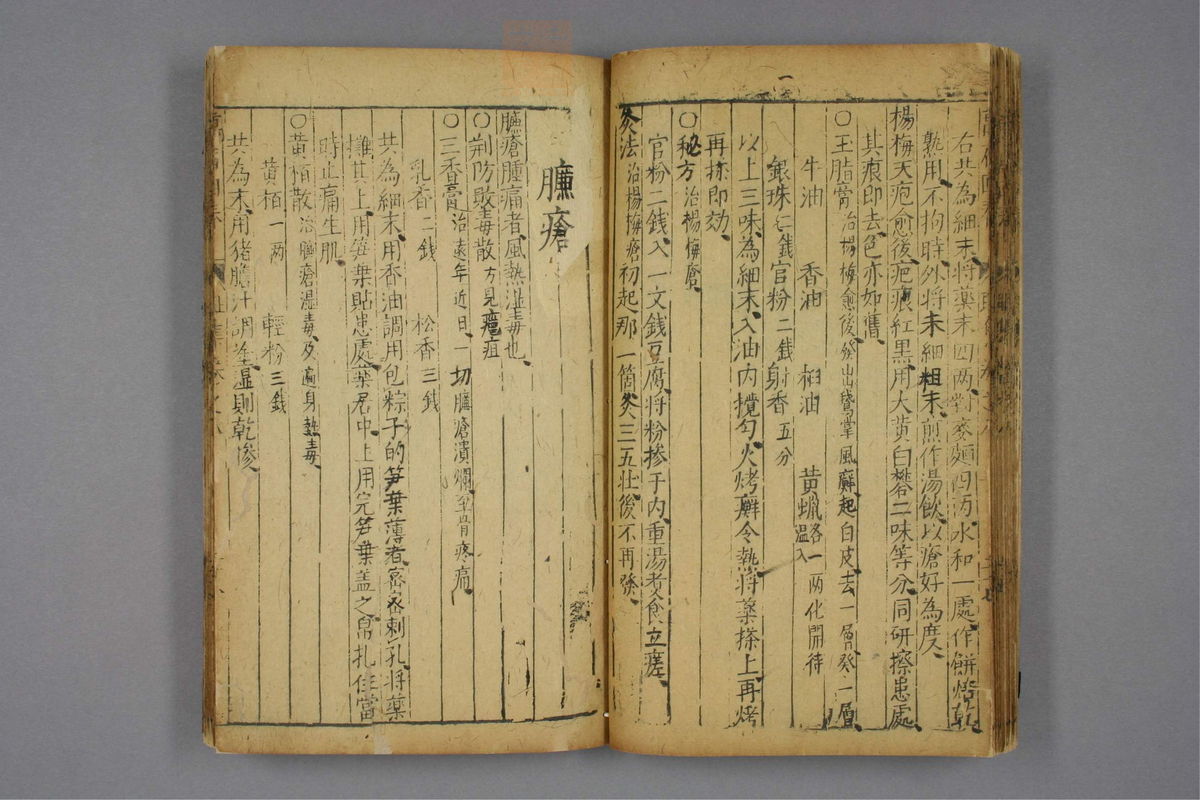 右共為細末將藥末四兩對麥麵四兩水和一處作餅烤乾
熟用不拘時外將末細粗末煎作湯飲以瘡好為度
楊梅天疱愈後疤痕紅黑用大黃白礬二味等分同研擦患處
其痕即去色亦如舊
〇玉脂膏治楊梅愈後發出鵞掌風癬起白皮去一層發一層
牛油 香油 桕油 黃蠟各一兩化開待溫入
銀珠二錢官粉二錢射香五分
以上三味為細末入油內攪勻火烤癬令熱將藥搽上再烤
再抹即効
〇秘方治楊梅瘡
官粉二錢入一文錢豆腐將粉摻于內重湯煮食立瘥
灸法治楊梅瘡初起那一箇灸三五壯後不再發
臁瘡
臁瘡腫痛者風熱濕毒也
〇荆防敗毒散方見癰疽
〇三香膏治遠年近日一切臁瘡潰爛至骨疼痛
乳香二錢 松香三錢
共為細末用香油調用包粽子的笋葉薄者密密刺孔將藥
攤其上用笋葉貼患處藥居中上用完笋葉盖之帛扎住當
時止痛生肌
〇黃栢散治臁瘡濕毒及遍身熱毒
黃栢一兩 輕粉三錢
共為末用猪膽汁調塗濕則乾慘